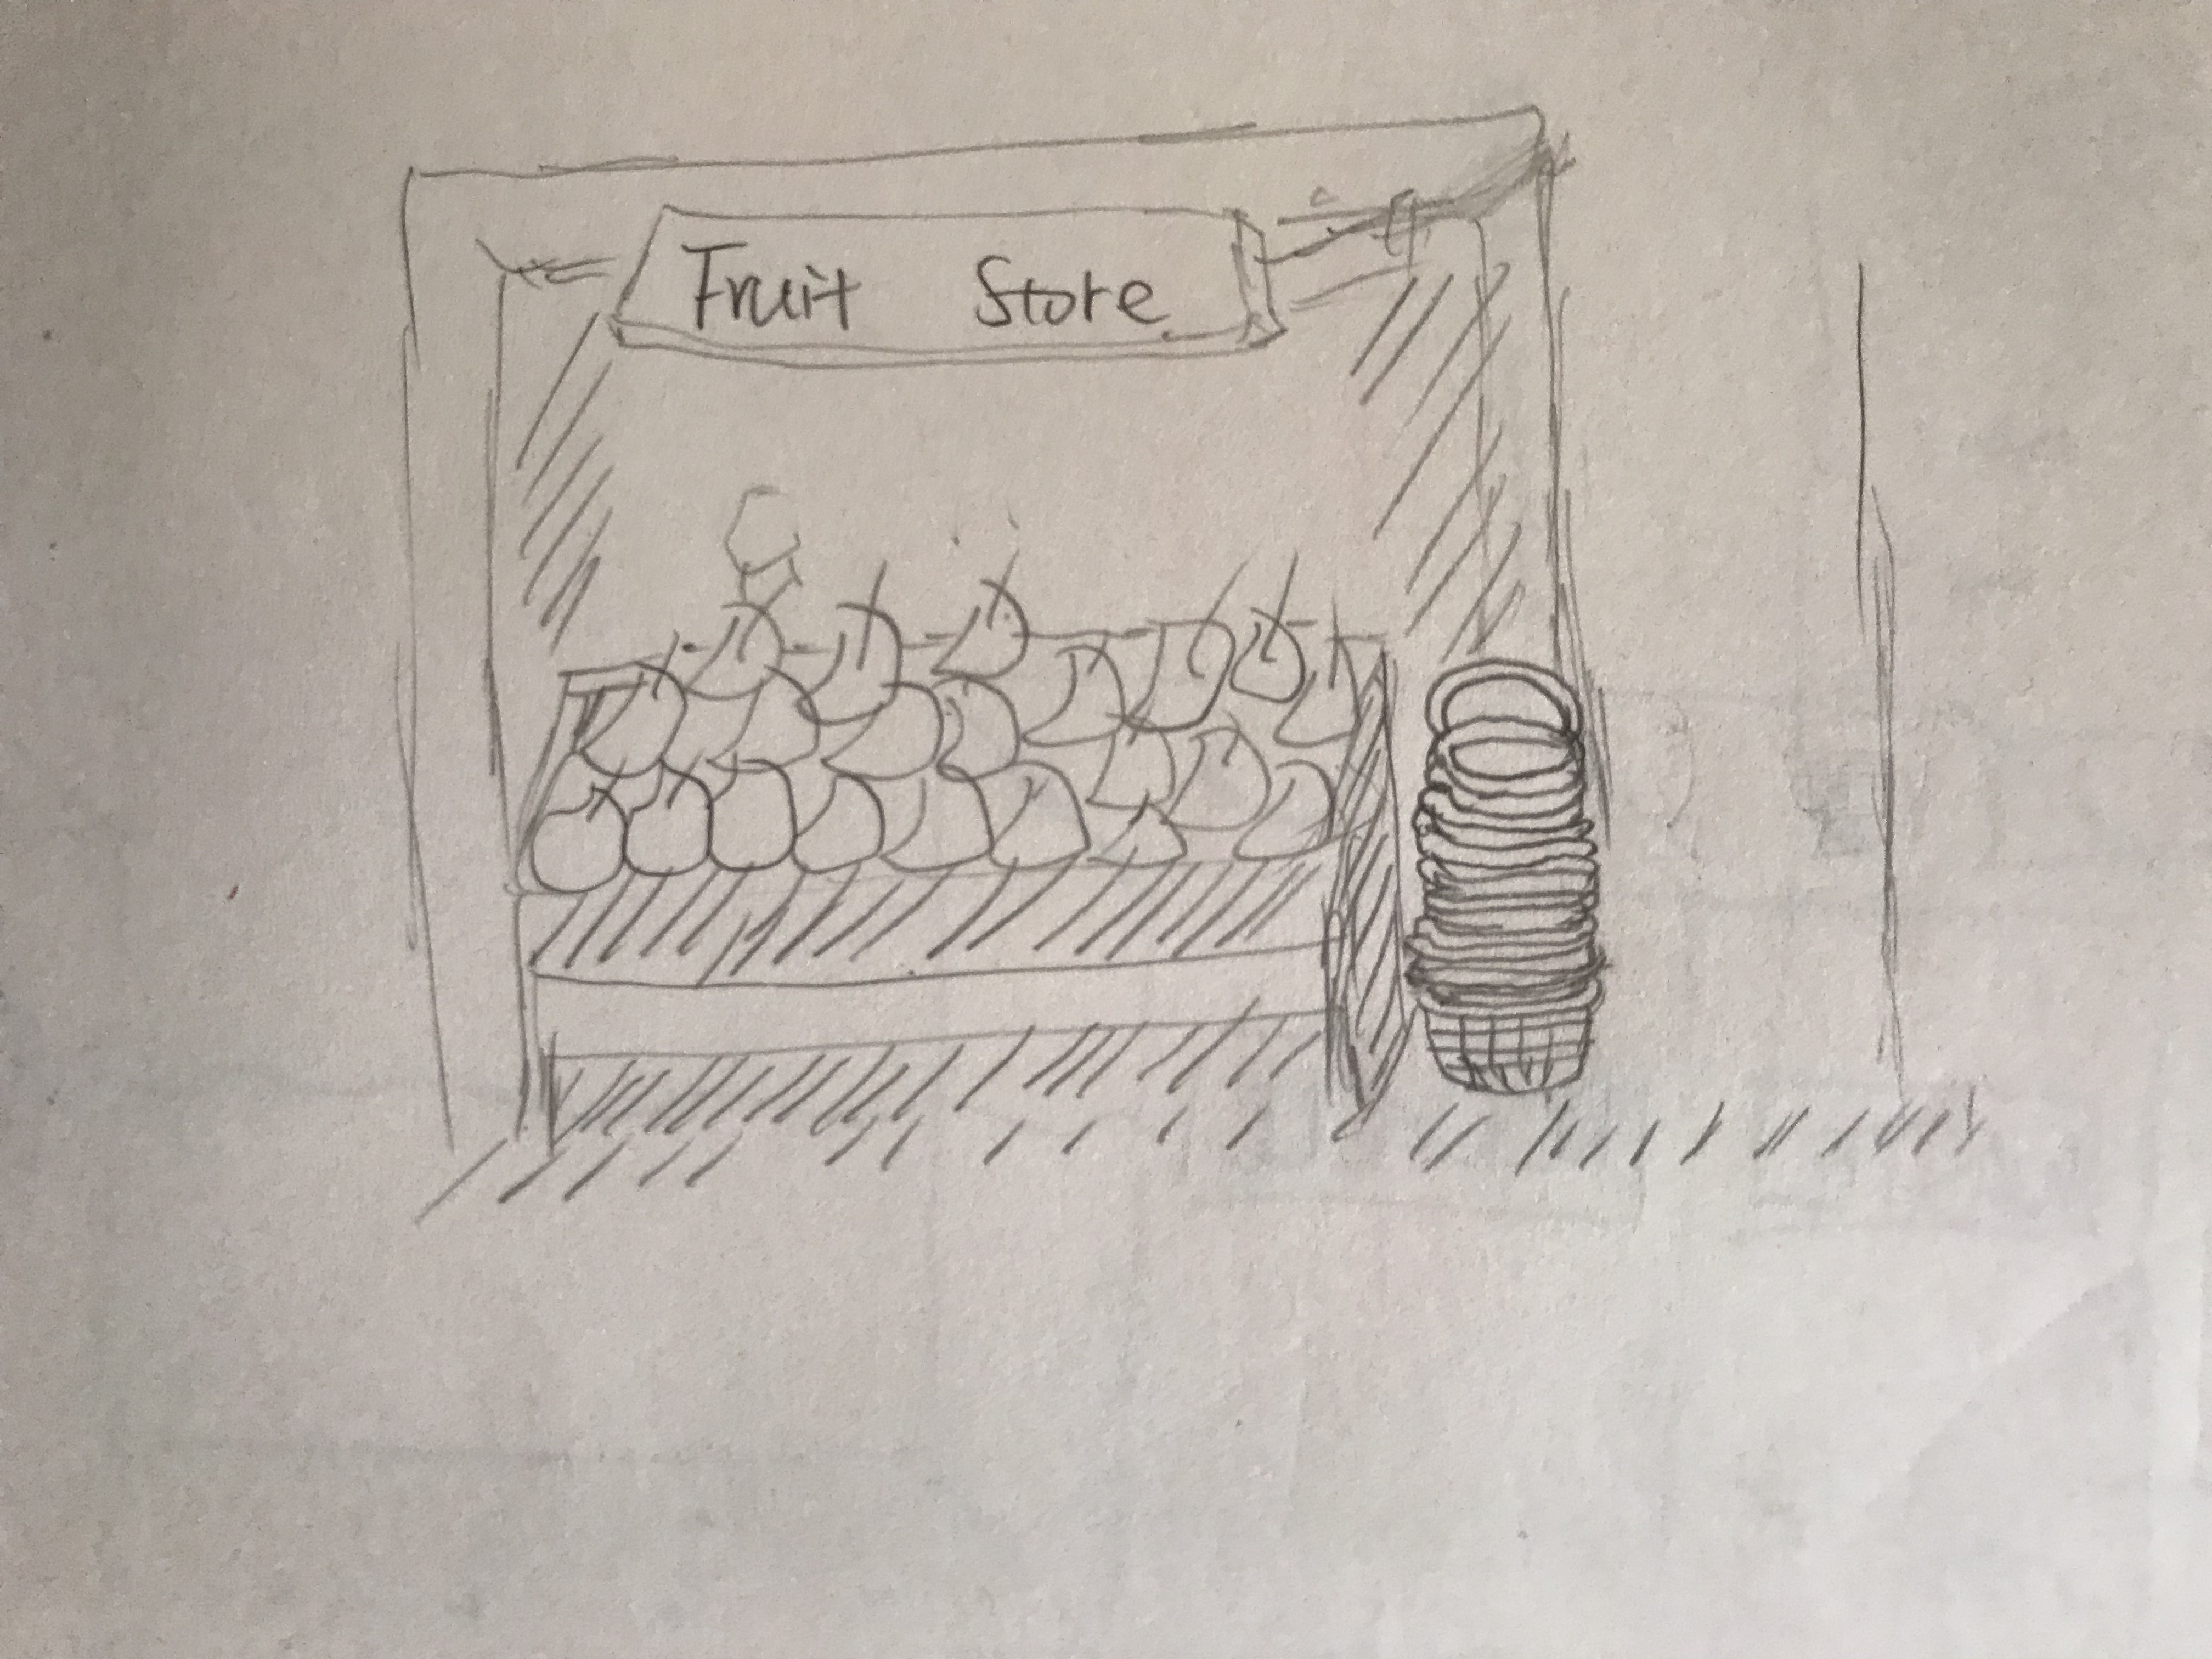 Fruit Store